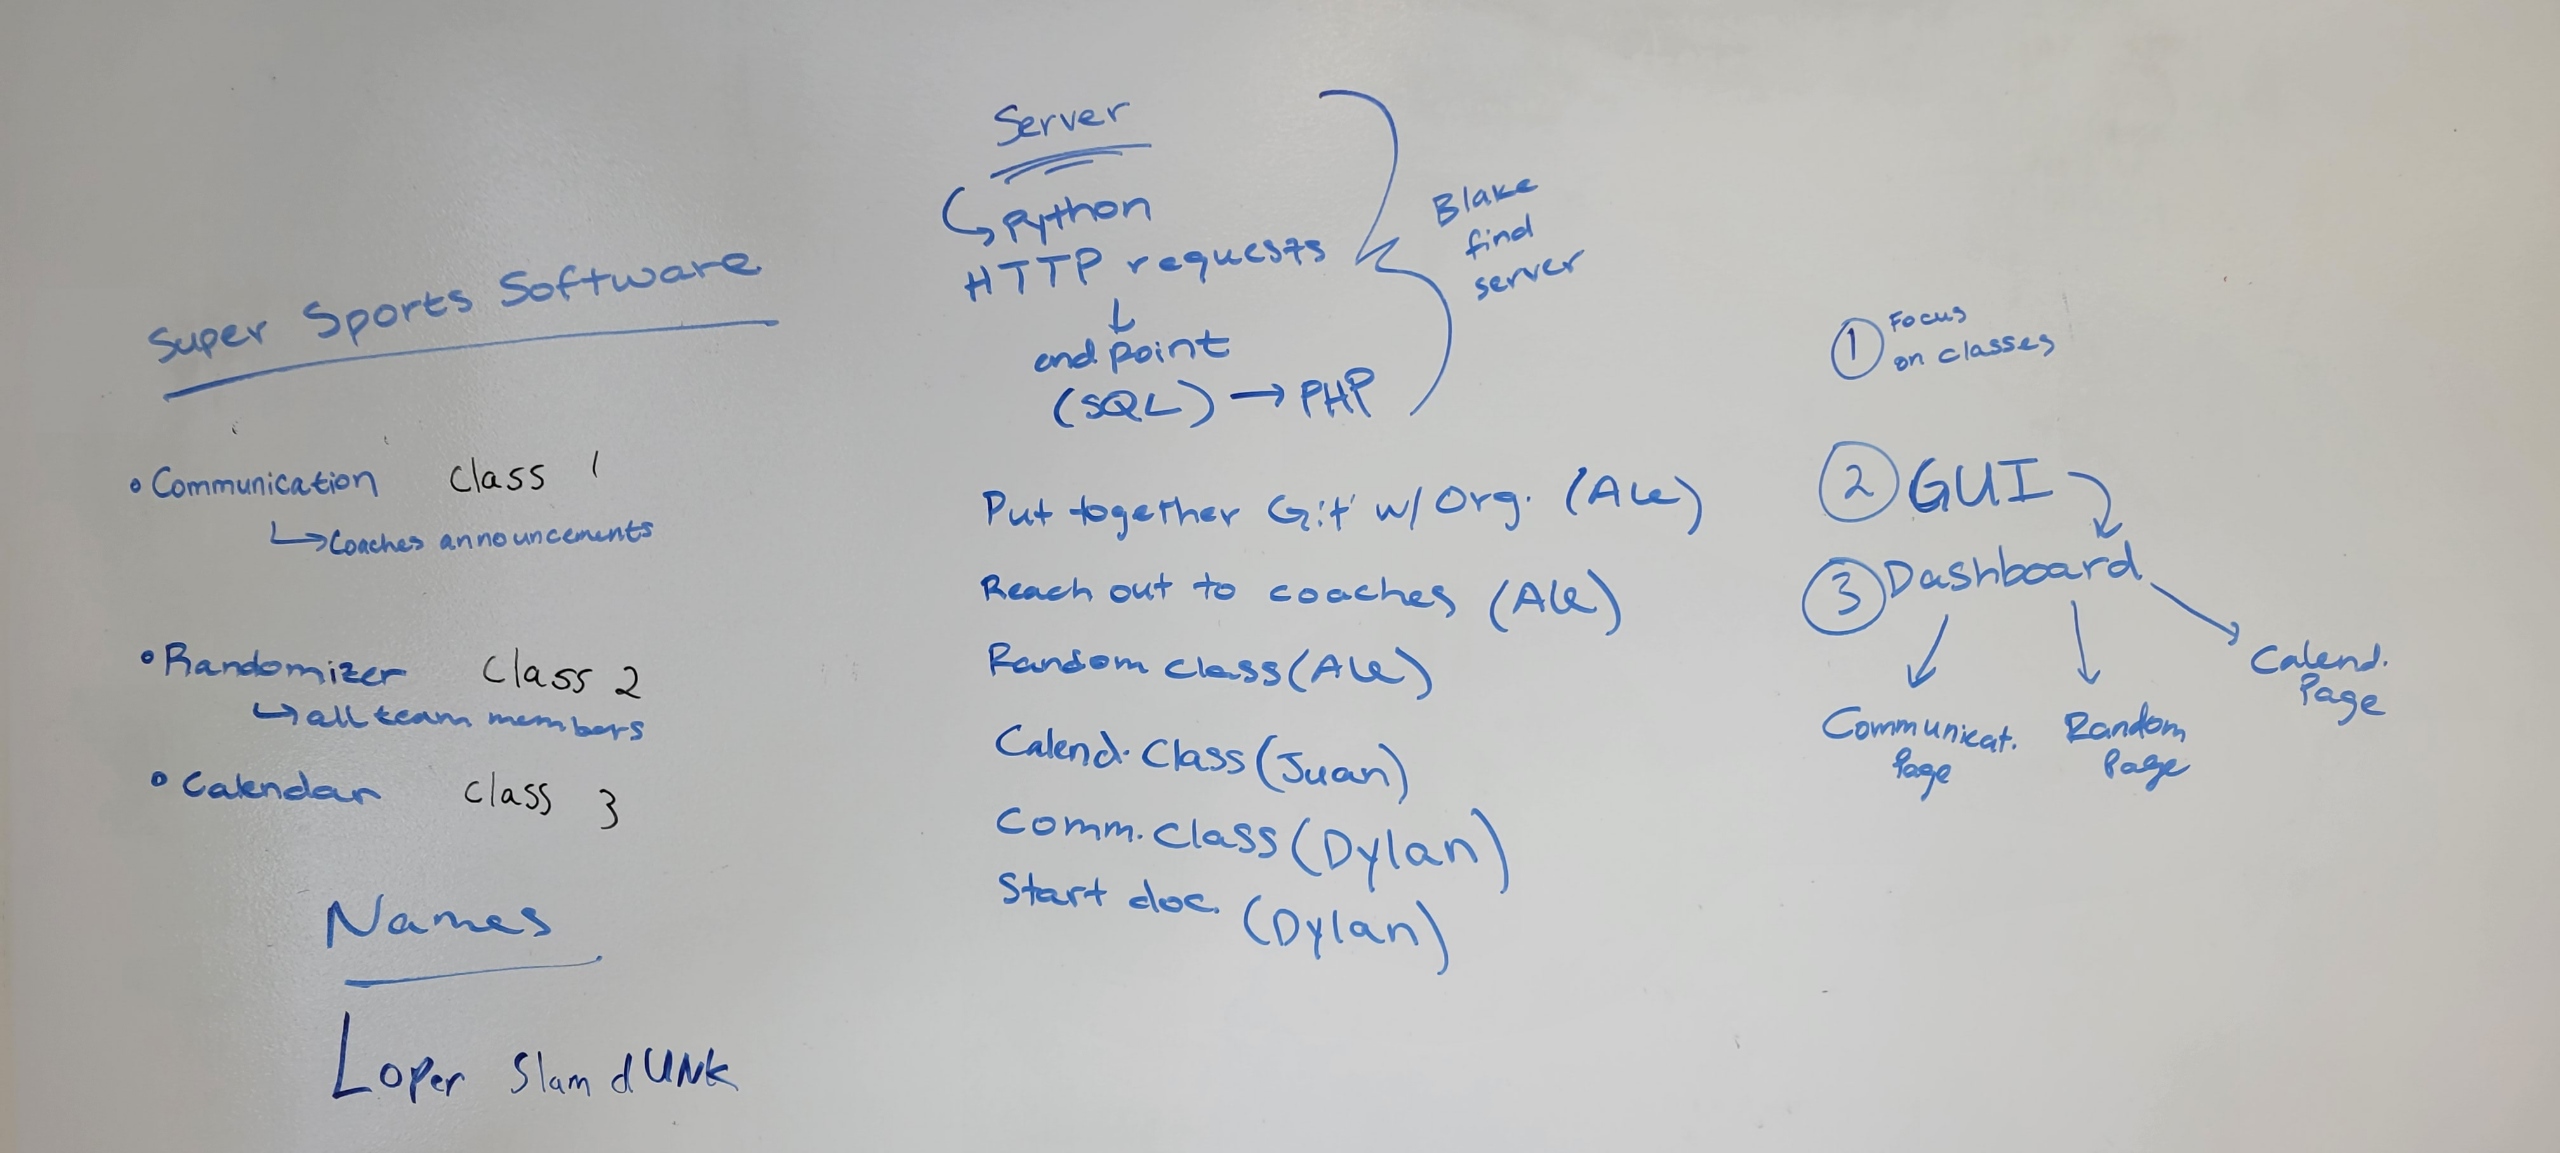 Super Sports Software
• Communication class 1
↳ Coaches announcements
• Randomizer class 2
↳ all team members
• Calendar class 3
Names
Loper Slam dUNK
Server
↳ Python
HTTP requests
↓
endpoint
(SQL) → PHP
Blake
find
server
Put together Git w/ Org. (Ale)
Reach out to coaches (Ale)
Random class (Ale)
Calend. Class (Juan)
Comm. Class (Dylan)
Start doc. (Dylan)
1 Focus
on classes
2 GUI
3 Dashboard
Communicat.
Page
Random
Page
Calend.
Page